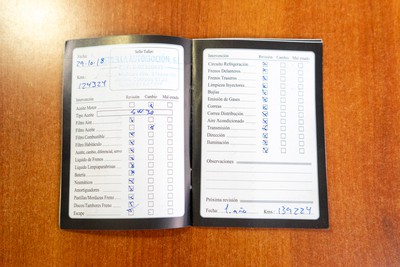 Fecha:
Sello Taller
29-10-18
Kms:
124224
Intervención
Revisión
Cambio
Mal estado
Aceite Motor
Tipo Aceite
5W30
Filtro Aire
Filtro Aceite
Filtro Combustible
Filtro Habitáculo
Aceite, cambio, diferencial, servo
Líquido de Frenos
Líquido Limpiaparabrisas
Batería
Neumáticos
Amortiguadores
Pastillas/Mordazas Freno
Discos/Tambores Freno
Escape
Intervención
Revisión
Cambio
Mal estado
Circuito Refrigeración
Frenos Delanteros
Frenos Traseros
Limpieza Inyectores
Bujías
Emisión de Gases
Correas
Correa Distribución
Aire Acondicionado
Transmisión
Dirección
Iluminación
Observaciones
Próxima revisión
Fecha: 1 año
Kms: 139224